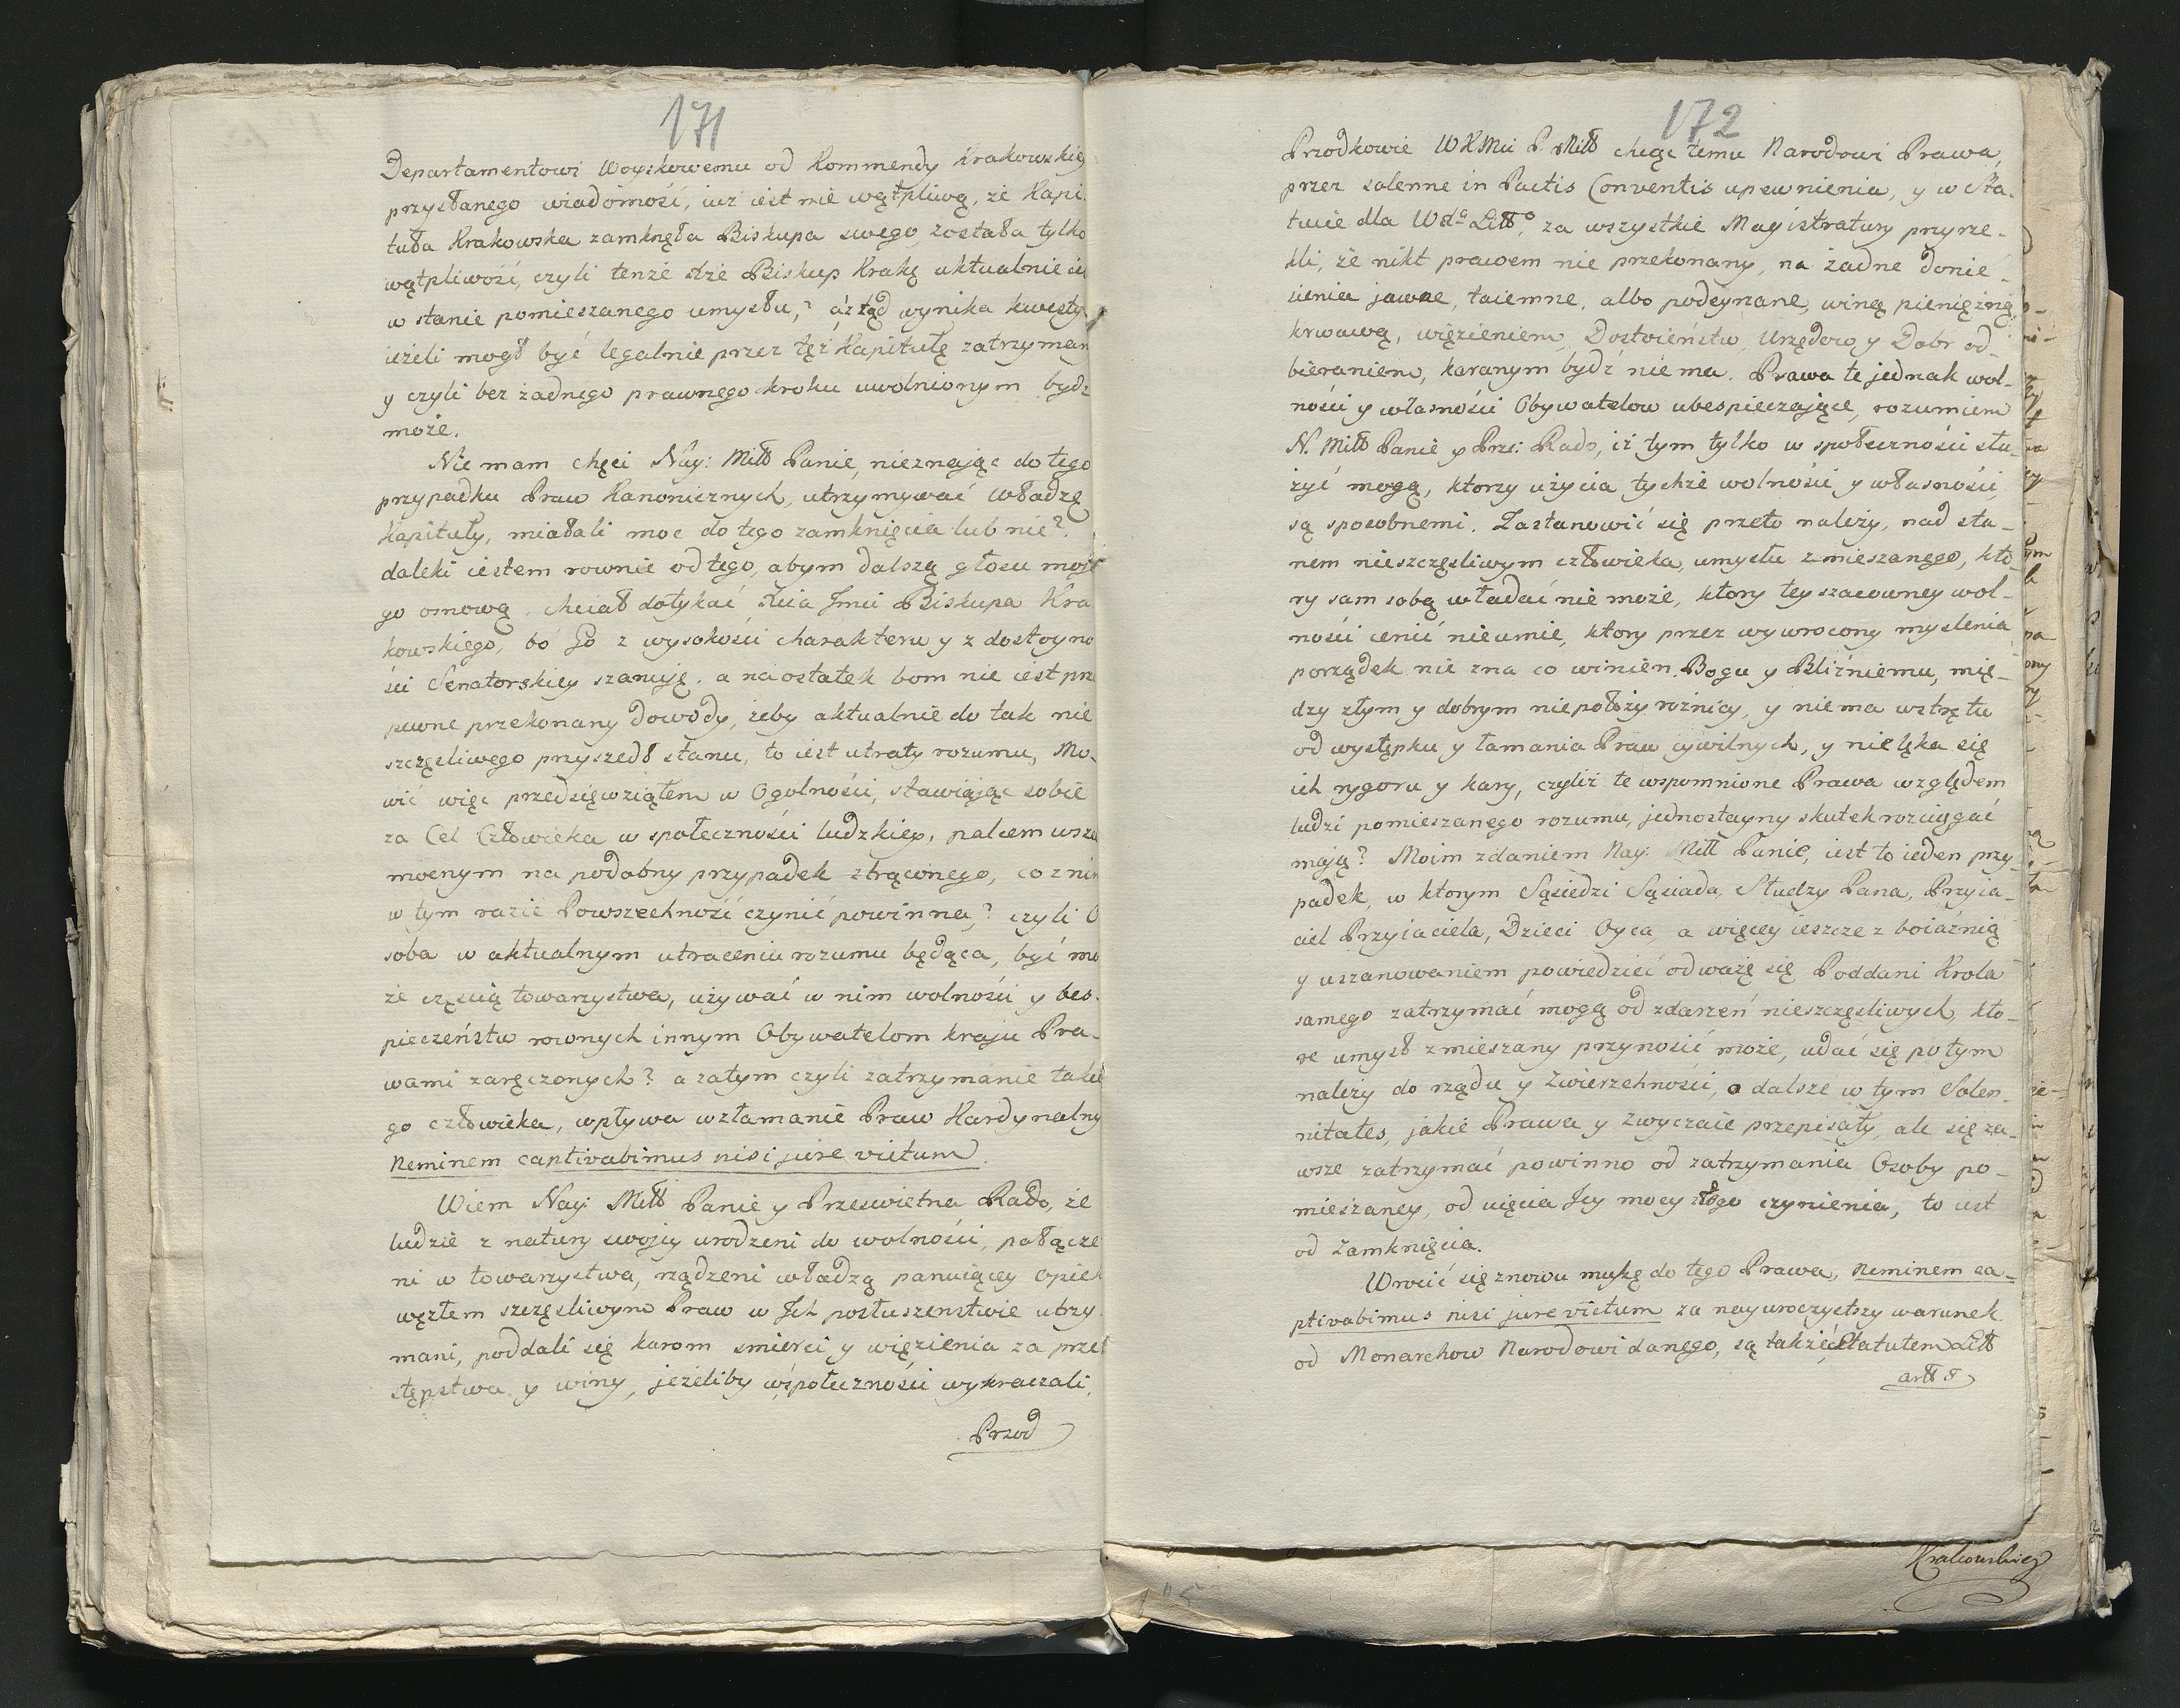 171
Departamentowi Woyskowemu od Kommendy Krakowskiey
przysłanego wiadomość, iuż iest nie wątpliwą, że Kapi-
tuła Krakowska zamknęła Biskupa swego, została tylko
wątpliwość, czyli tenże Xże Biskup Krakg aktualnie iest
w stanie pomieszanego umysłu,? a ztąd wynika kwesty
ieżeli mogł być legalnie przez tęż Kapitułę zatrzyman
y czyli bez żadnego prawnego kroku uwolnionym bydz
może.
Nie mam chęci Nay: Miłł Panie, nieznając do tego
przypadku Praw Kanonicznych, utrzymywać władzę
Kapituły, miałali moc do tego zamknięcia lub nie?
daleki iestem rownie od tego, abym dalszą głosu moje
go osnową, chciał dotykać Xcia Jmci Biskupa Kra
kowskiego, bo Go z wysokości charakteru y z dostoyno
ści Senatorskiey szanuję, a naostatek bom nie iest prze
pewne przekonany dowody, żeby aktualnie do tak nie
szczęsliwego przyszedł stanu, to iest utraty rozumu, Mo-
wić więc przedsięwziąłem w Ogolności, stawiając sobie
za Cel Człowieka w społeczności ludzkiey, palcem wsze
mocnym na podobny przypadek strąconego, co z nim
w tym razie Powszechność czynić powinna,? czyli O
soba w aktualnym utraceniu rozumu będąca, być mo
że częscią towarzystwa, używać w nim wolności y bes-
pieczeństw rownych innym Obywatelom kraju Pra-
wami zaręczonych? a zatym czyli zatrzymanie takie
go człowieka, wpływa w złamanie Praw Kardynalny
Neminem captivabimus nisi jure victum.
Wiem Nay: Miłł Panie y Przeswietna Rado, że
ludzie z natury swojey urodzeni do wolności, połącze
ni w towarzystwa, rządzeni władzą panuiącey opiek
węzłem szczęsliwym Praw w Ich posłuszenstwie utrzy
mani, poddali się karom smierci y więzienia za prze
stępstwa y winy, jeżeliby w społeczności wykraczali,
Przod
172
Przodkowie WKMci P. Miłł chcąc temu Narodowi Prawa,
przez solenne in Pactis Conventis upewnienia, y w Sta-
tucie dla Wda Litto, za wszystkie Magistratury przyrze-
kli, że nikt prawem nie przekonany, na żadne donie-
sienia jawne, taiemne, albo podeyrzane, winą pieniężną,
krwawą, więzieniem, Dostoieństw, Urzędow y Dobr od-
bieraniem, karanym bydź nie ma. Prawa te jednak wol-
ności y własności Obywatelow ubespieczające, rozumiem
N. Miłł Panie y Prze: Rado, iż tym tylko w społeczności słu
żyć mogą, ktorzy użycia tychże wolności y własności
są sposobnemi. Zastanowić się przeto należy, nad sta-
nem nieszczęsliwym człowieka, umysłu zmieszanego, kto-
ry sam sobą władać nie może, ktory tey szacowney wol-
ności cenić nieumie, ktory przez wywrocony myslenia
porządek nie zna co winien Bogu y Bliźniemu, mię-
dzy złym y dobrym niepołoży rożnicy, y nie ma wstrętu
od występku y łamania Praw cywilnych, y nie lęka się
ich rygoru y kary, czyliż te wspomnione Prawa względem
ludzi pomieszanego rozumu, jednostayny skutek rozciągać
mają? Moim zdaniem Nay: Miłł Panie, iest to ieden przy-
padek, w ktorym Sąsiedzi Sąsiada, Słudzy Pana, Przyia-
ciel Przyiaciela, Dzieci Oyca, a więcey ieszcze z boiaźnią
y uszanowaniem powiedzieć odważę się Poddani Krola
samego zatrzymać mogą od zdarzeń nieszczęsliwych, kto-
re umysł zmieszany przynosić może, udać się po tym
należy do rządu y Zwierzchności, o dalsze w tym Solen-
nitates, jakie Prawa y zwyczaie przepisały, ale się za-
wsze zatrzymać powinno od zatrzymania Osoby po-
mieszaney, od ujęcia Jey mocy złego czynienia, to iest
od zamknięcia.
Wrocić się znowu muszę do tego Prawa, neminem ca-
ptivabimus nisi jure victum za nayuroczystszy warunek
od Monarchow Narodowi danego, są także Statutem Litt
artt
Krakowskiey